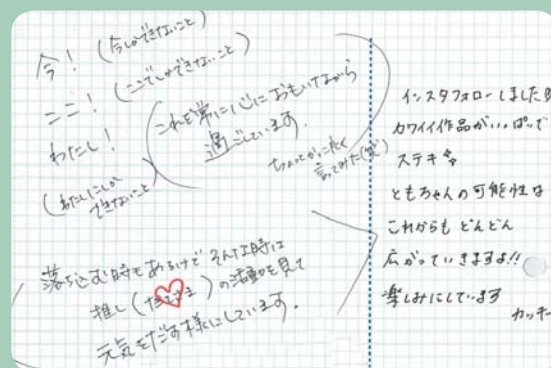 今！(今しかできないこと)
ここ！(ここでしかできないこと)
わたし！
(わたしにしか
できないこと)
これを常に心におもいながら
過ごしています。
ちょっとかっこよく
言ってみた(笑)
落ち込む時もあるけど そんな時は
推し( )の活動を見て
元気をだす様にしています。
インスタフォローしました
カワイイ作品がいっぱいで
ステキ
ともちゃんの可能性は
これからも どんどん
広がっていきますよ!!
楽しみにしています
カッキー